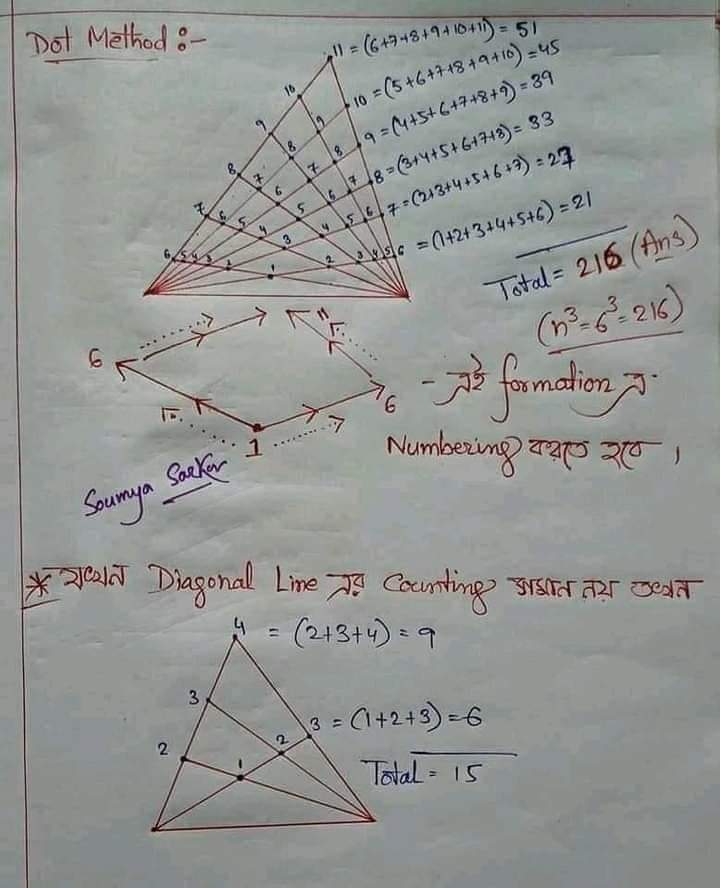 Dot Method :-
11 = (6+7+8+9+10+11) = 51
10 = (5+6+7+8+9+10) = 45
9 = (4+5+6+7+8+9) = 39
8 = (3+4+5+6+7+8) = 33
7 = (2+3+4+5+6+7) = 27
6 = (1+2+3+4+5+6) = 21
10 9
9 8
8 7 6 7 8
7 6 5 4 3 4 5 6
5 6 7
6 5 4 3 2 1 2 3 4 5
Total = 216 (Ans)
(n³=6³=216)
11
6 6
1
- এই formation এ
Numbering করতে হবে।
Soumya Sarkar
* যখন Diagonal Line এর Counting সমান নয় তখন
4 = (2+3+4) = 9
3
2 1 2 3 = (1+2+3) = 6
Total = 15